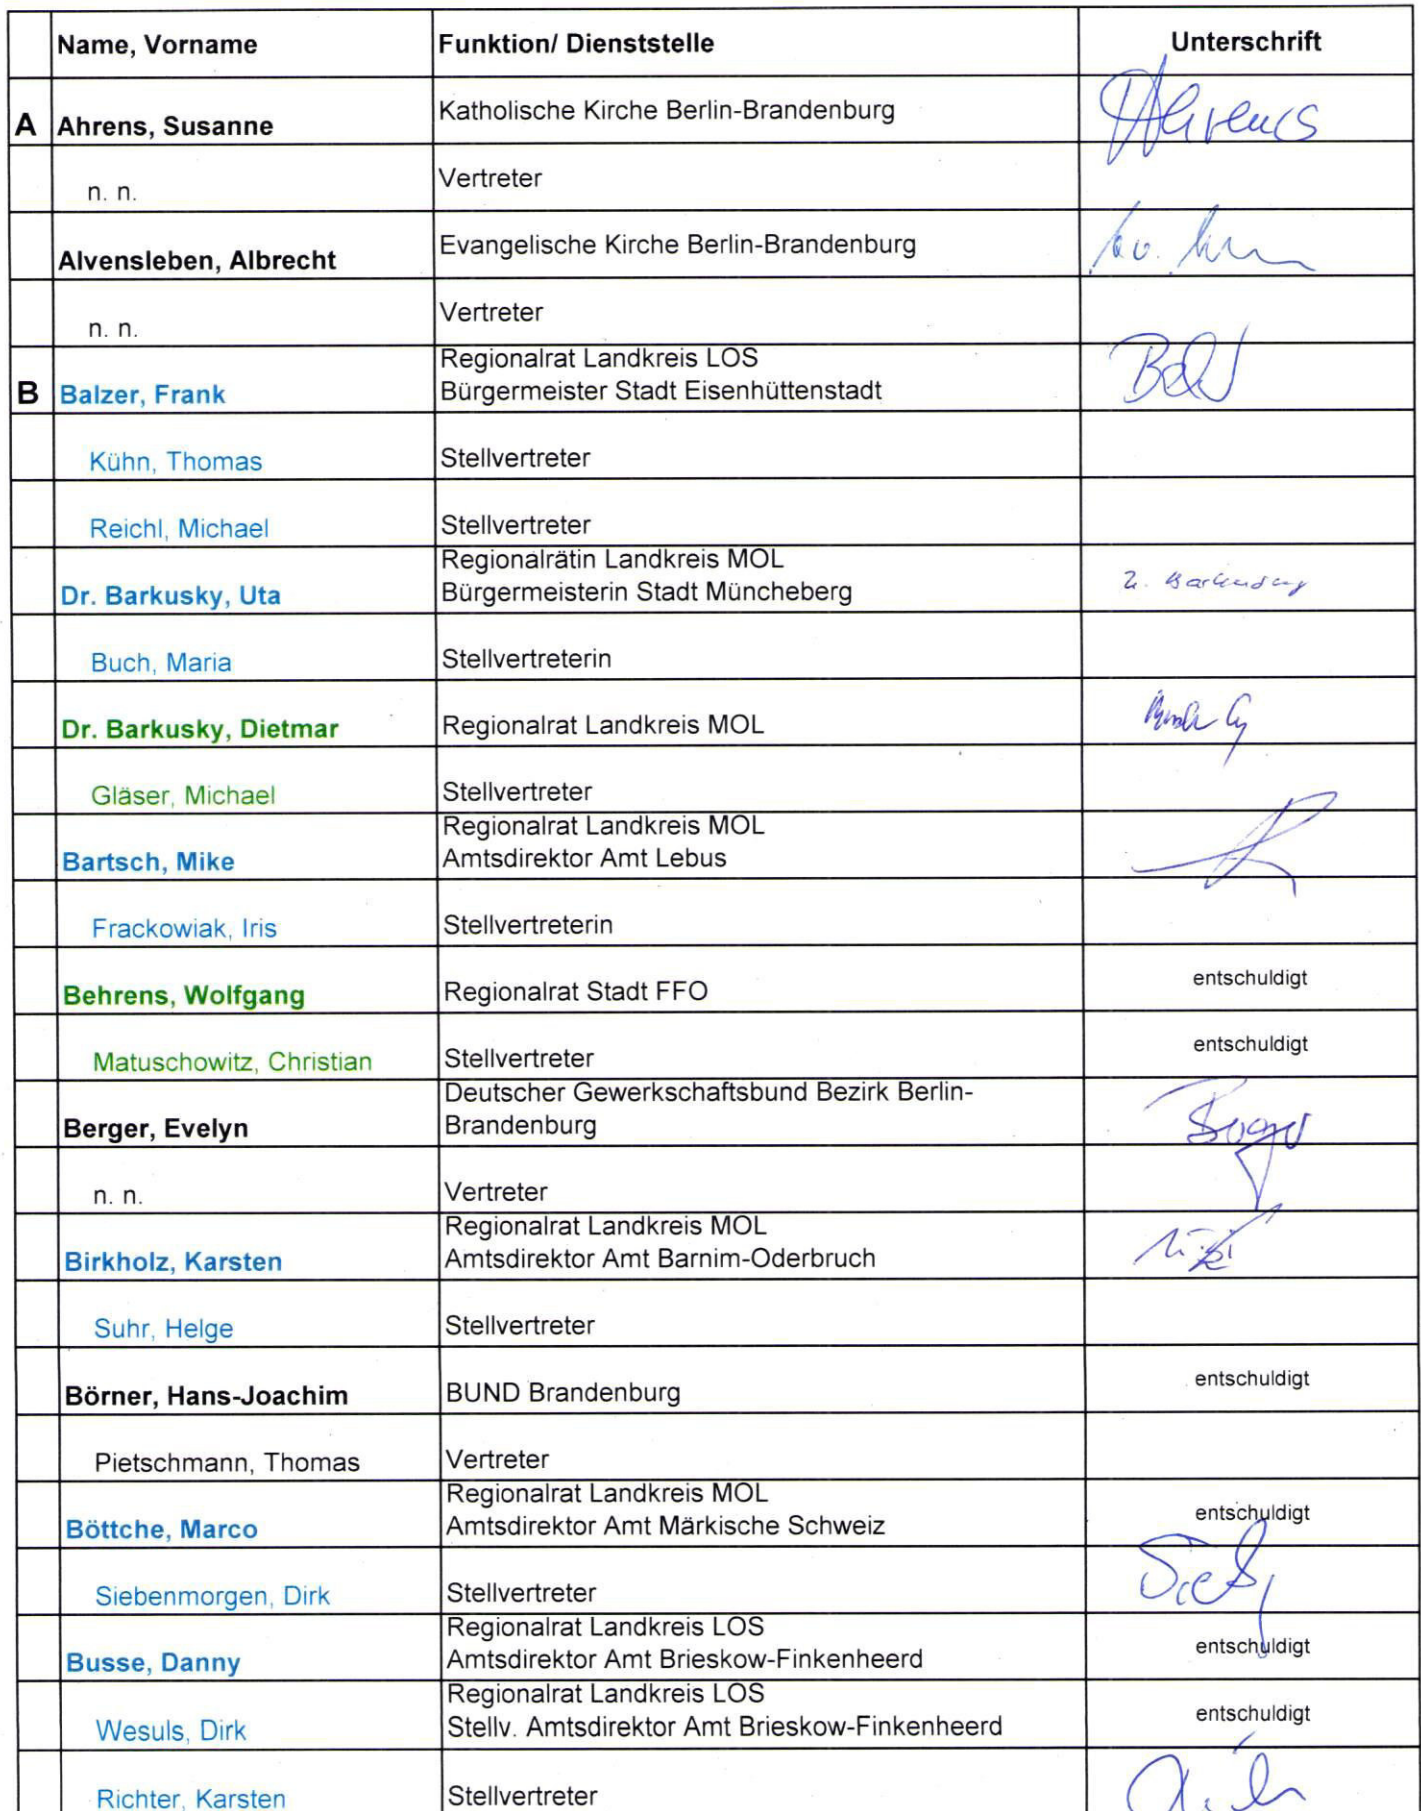 Name, Vorname Funktion/ Dienststelle Unterschrift
A Ahrens, Susanne Katholische Kirche Berlin-Brandenburg Ahrens
n. n. Vertreter
Alvensleben, Albrecht Evangelische Kirche Berlin-Brandenburg
n. n. Vertreter
Regionalrat Landkreis LOS
B Balzer, Frank Bürgermeister Stadt Eisenhüttenstadt
Kühn, Thomas Stellvertreter
Reichl, Michael Stellvertreter
Regionalrätin Landkreis MOL
Dr. Barkusky, Uta Bürgermeisterin Stadt Müncheberg U. Barkusky
Buch, Maria Stellvertreterin
Dr. Barkusky, Dietmar Regionalrat Landkreis MOL
Gläser, Michael Stellvertreter
Regionalrat Landkreis MOL
Bartsch, Mike Amtsdirektor Amt Lebus
Frackowiak, Iris Stellvertreterin
Behrens, Wolfgang Regionalrat Stadt FFO entschuldigt
Matuschowitz, Christian Stellvertreter entschuldigt
Deutscher Gewerkschaftsbund Bezirk Berlin-
Berger, Evelyn Brandenburg Berger
n. n. Vertreter
Regionalrat Landkreis MOL
Birkholz, Karsten Amtsdirektor Amt Barnim-Oderbruch
Suhr, Helge Stellvertreter
Börner, Hans-Joachim BUND Brandenburg entschuldigt
Pietschmann, Thomas Vertreter
Regionalrat Landkreis MOL
Böttche, Marco Amtsdirektor Amt Märkische Schweiz entschuldigt
Siebenmorgen, Dirk Stellvertreter
Regionalrat Landkreis LOS
Busse, Danny Amtsdirektor Amt Brieskow-Finkenheerd entschuldigt
Regionalrat Landkreis LOS
Wesuls, Dirk Stellv. Amtsdirektor Amt Brieskow-Finkenheerd entschuldigt
Richter, Karsten Stellvertreter